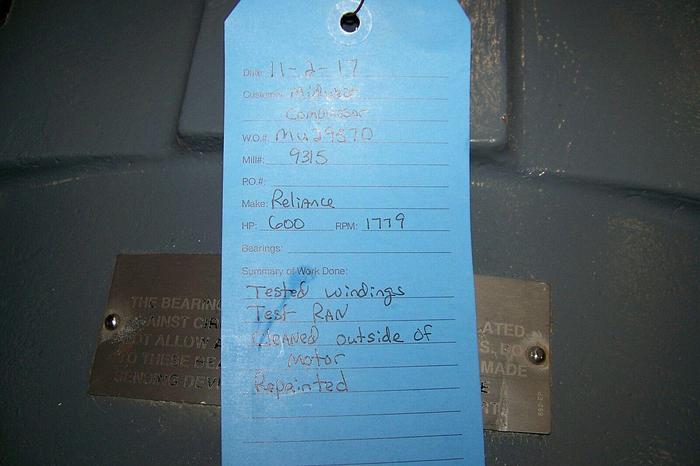 Date: 11-2-17
Customer: Midwest
Compressor
W.O.#: MU29570
Mill#: 9315
P.O.#:
Make: Reliance
HP: 600 RPM: 1779
Bearings:
Summary of Work Done:
Tested windings
Test RAN
Cleaned outside of
Motor
Repainted
THE BEARING
AGAINST
NOT ALLOW A
TO THESE
SENSING DEV
LATED
S, BO
MADE
E